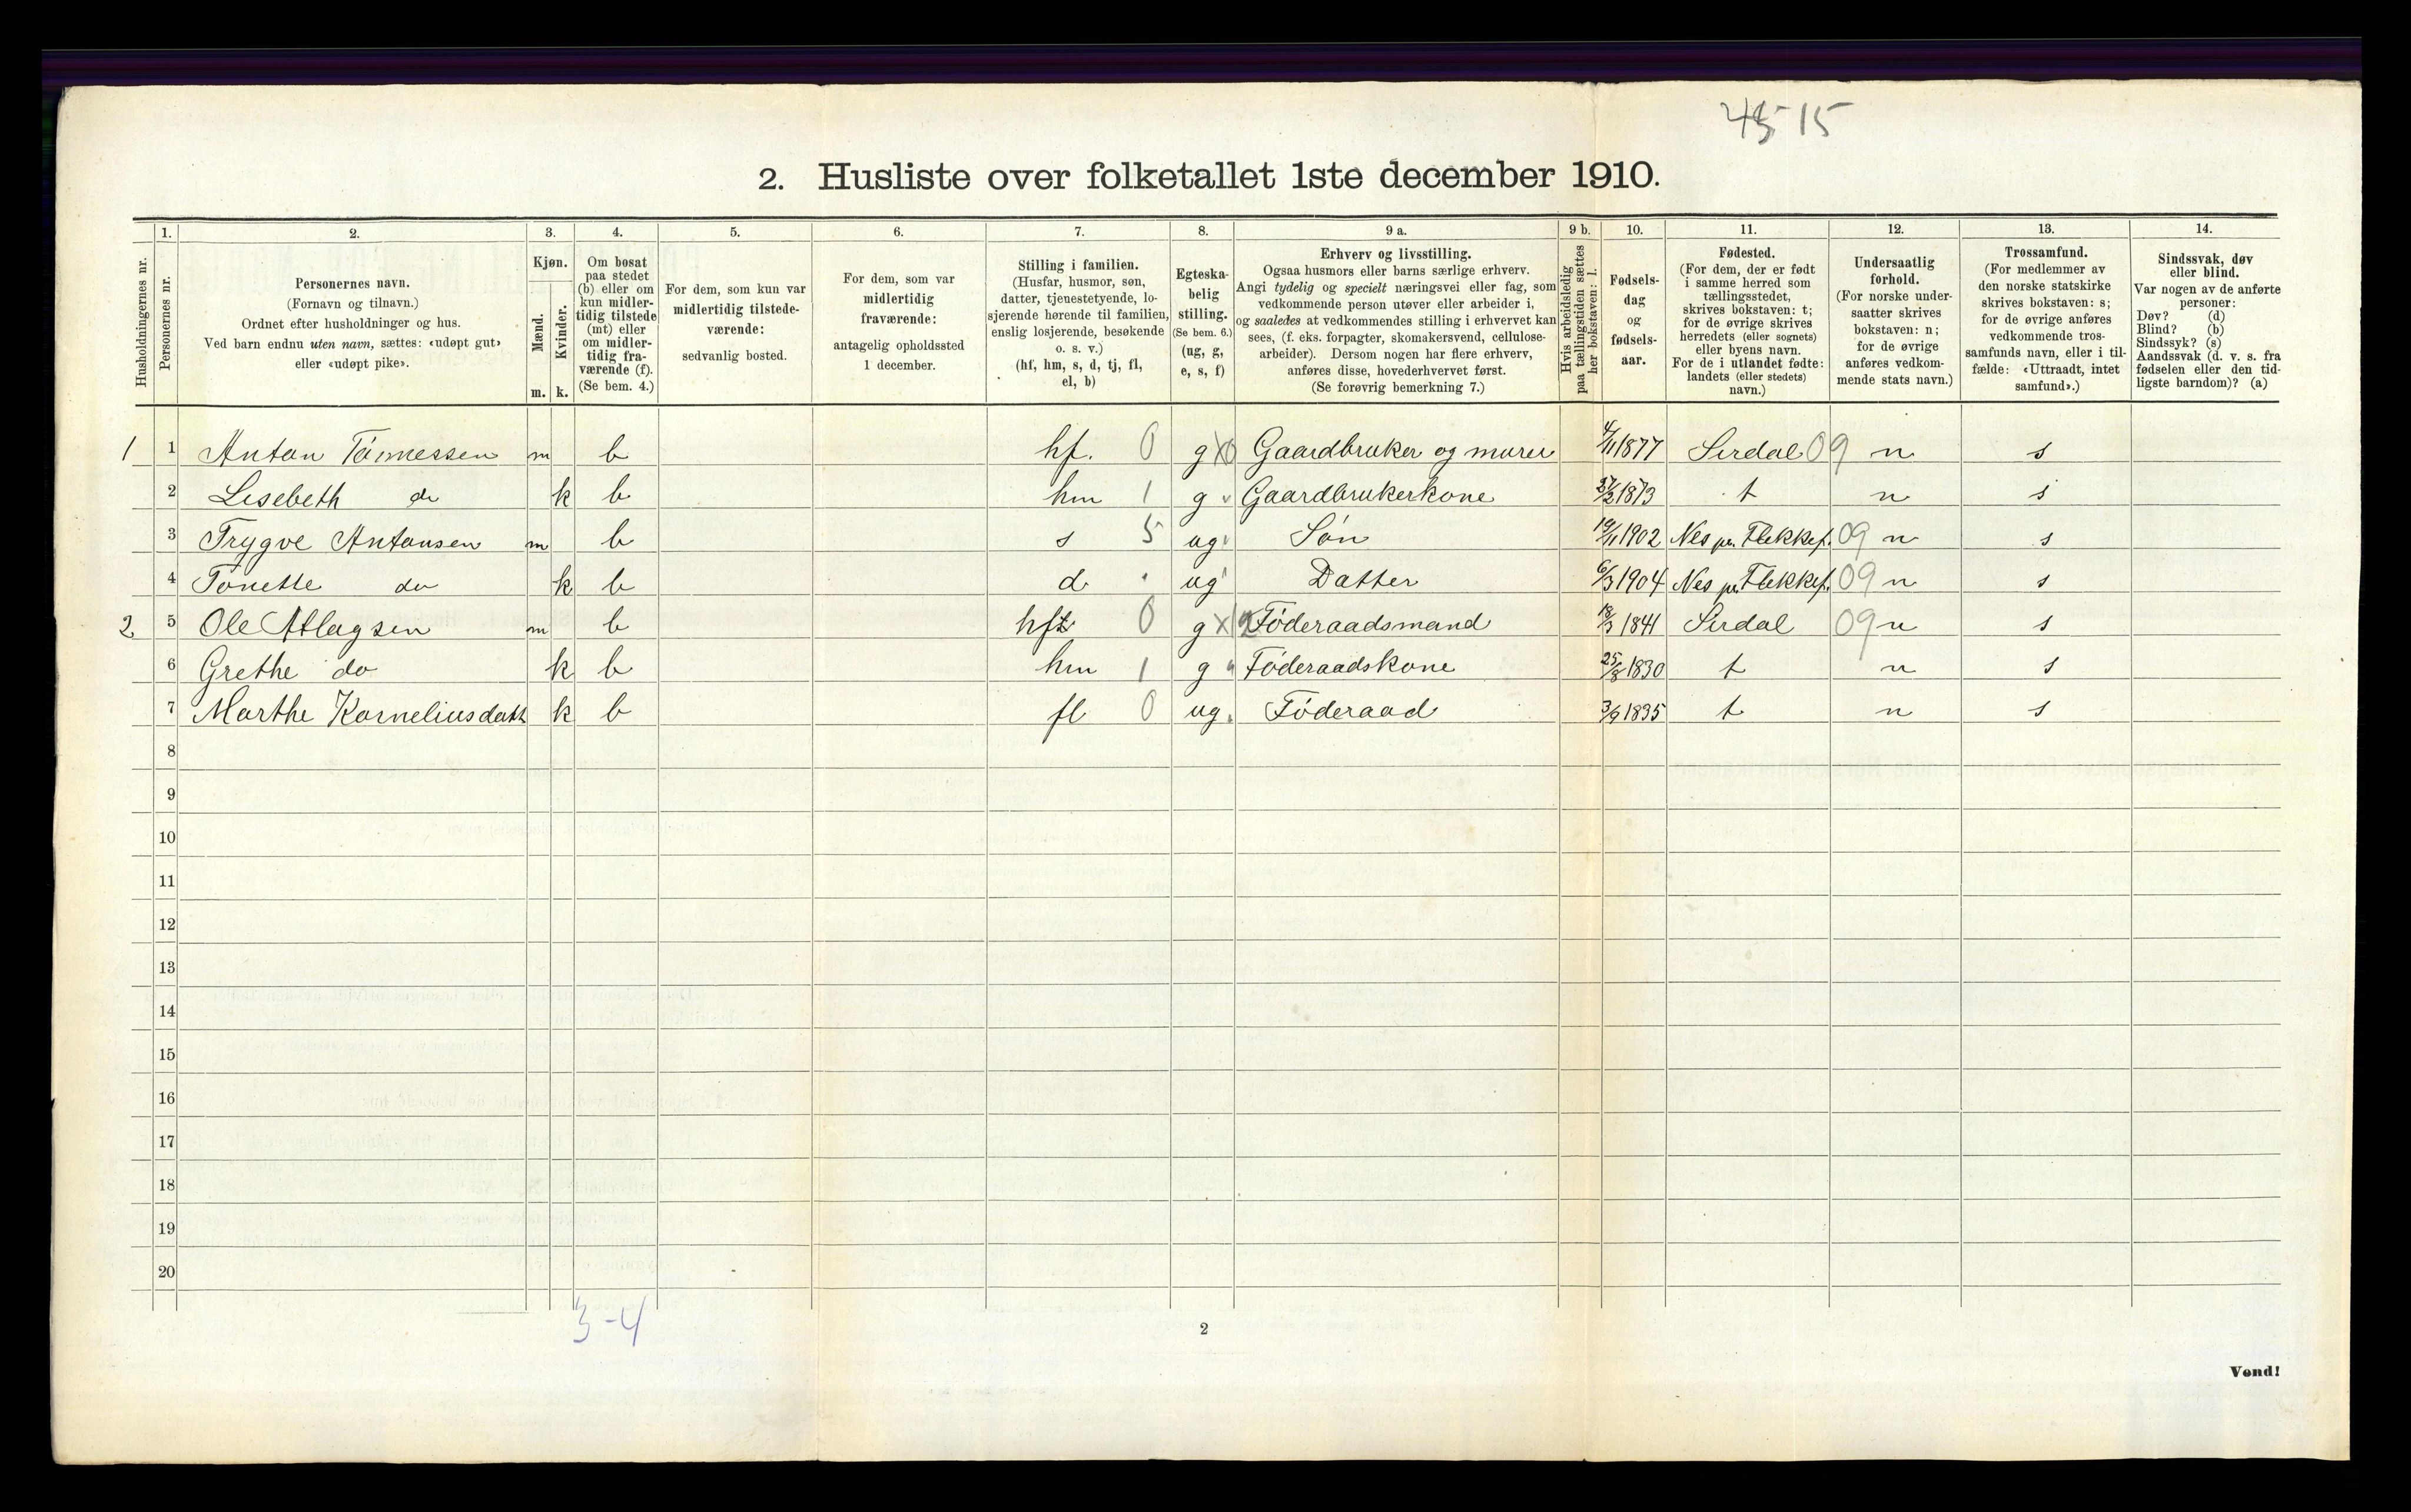 45-15
2. Husliste over folketallet 1ste december 1910.
1. 2. 3. 4. 5. 6. 7. 8. 9 a. 9 b. 10. 11. 12. 13. 14.
Husholdningernes nr.
Personernes nr.
Personernes navn.
(Fornavn og tilnavn.)
Ordnet efter husholdninger og hus.
Ved barn endnu uten navn, sættes: «udøpt gut»
eller «udøpt pike».
Kjøn.
Mænd.
Kvinder.
m. k.
Om bosat
paa stedet
(b) eller om
kun midler-
tidig tilstede
(mt) eller
om midler-
tidig fra-
værende (f).
(Se bem. 4.)
For dem, som kun var
midlertidig tilstede-
værende:
sedvanlig bosted.
For dem, som var
midlertidig
fraværende:
antagelig opholdssted
1 december.
Stilling i familien.
(Husfar, husmor, søn,
datter, tjenestetyende, lo-
sjerende hørende til familien,
enslig losjerende, besøkende
o. s. v.)
(hf, hm, s, d, tj, fl,
el, b)
Egteska-
belig
stilling.
(Se bem. 6.)
(ug, g,
e, s, f)
Erhverv og livsstilling.
Ogsaa husmors eller barns særlige erhverv.
Angi tydelig og specielt næringsvei eller fag, som
vedkommende person utøver eller arbeider i,
og saaledes at vedkommendes stilling i erhvervet kan
sees, (f. eks. forpagter, skomakersvend, cellulose-
arbeider). Dersom nogen har flere erhverv,
anføres disse, hovederhvervet først.
(Se forøvrig bemerkning 7.)
Hvis arbeidsledig
paa tællingstiden sættes
her bokstaven: l.
Fødsels-
dag
og
fødsels-
aar.
Fødested.
(For dem, der er født
i samme herred som
tællingsstedet,
skrives bokstaven: t;
for de øvrige skrives
herredets (eller sognets)
eller byens navn.
For de i utlandet fødte:
landets (eller stedets)
navn.)
Undersaatlig
forhold.
(For norske under-
saatter skrives
bokstaven: n;
for de øvrige
anføres vedkom-
mende stats navn.)
Trossamfund.
(For medlemmer av
den norske statskirke
skrives bokstaven: s;
for de øvrige anføres
vedkommende tros-
samfunds navn, eller i til-
fælde: «Uttraadt, intet
samfund».)
Sindssvak, døv
eller blind.
Var nogen av de anførte
personer:
Døv? (d)
Blind? (b)
Sindssyk? (s)
Aandssvak (d. v. s. fra
fødselen eller den tid-
ligste barndom)? (a)
1 1 Anton Tønnessen m b hf. 0 g X0 Gaardbruker og murer 4/11 1877 Sirdal 09 n s
2 Lisebeth do k b hm 1 g Gaardbrukerkone 27/2 1873 t n s
3 Trygve Antonsen m b s 5 ug Søn 19/11 1902 Nes pr. Flekkef. 09 n s
4 Tonette do k b d ug Datter 6/3 1904 Nes pr. Flekkef. 09 n s
2 5 Ole Atlagsen m b hf 0 g X Føderaadsmand 18/3 1841 Sirdal 09 n s
6 Grethe do k b hm 1 g Føderaadskone 25/8 1830 t n s
7 Marthe Korneliusdatt k b fl 0 ug. Føderaad 3/9 1835 t n s
8
9
10
11
12
13
14
15
16
17
18
19
20
3-4
2
Vend!